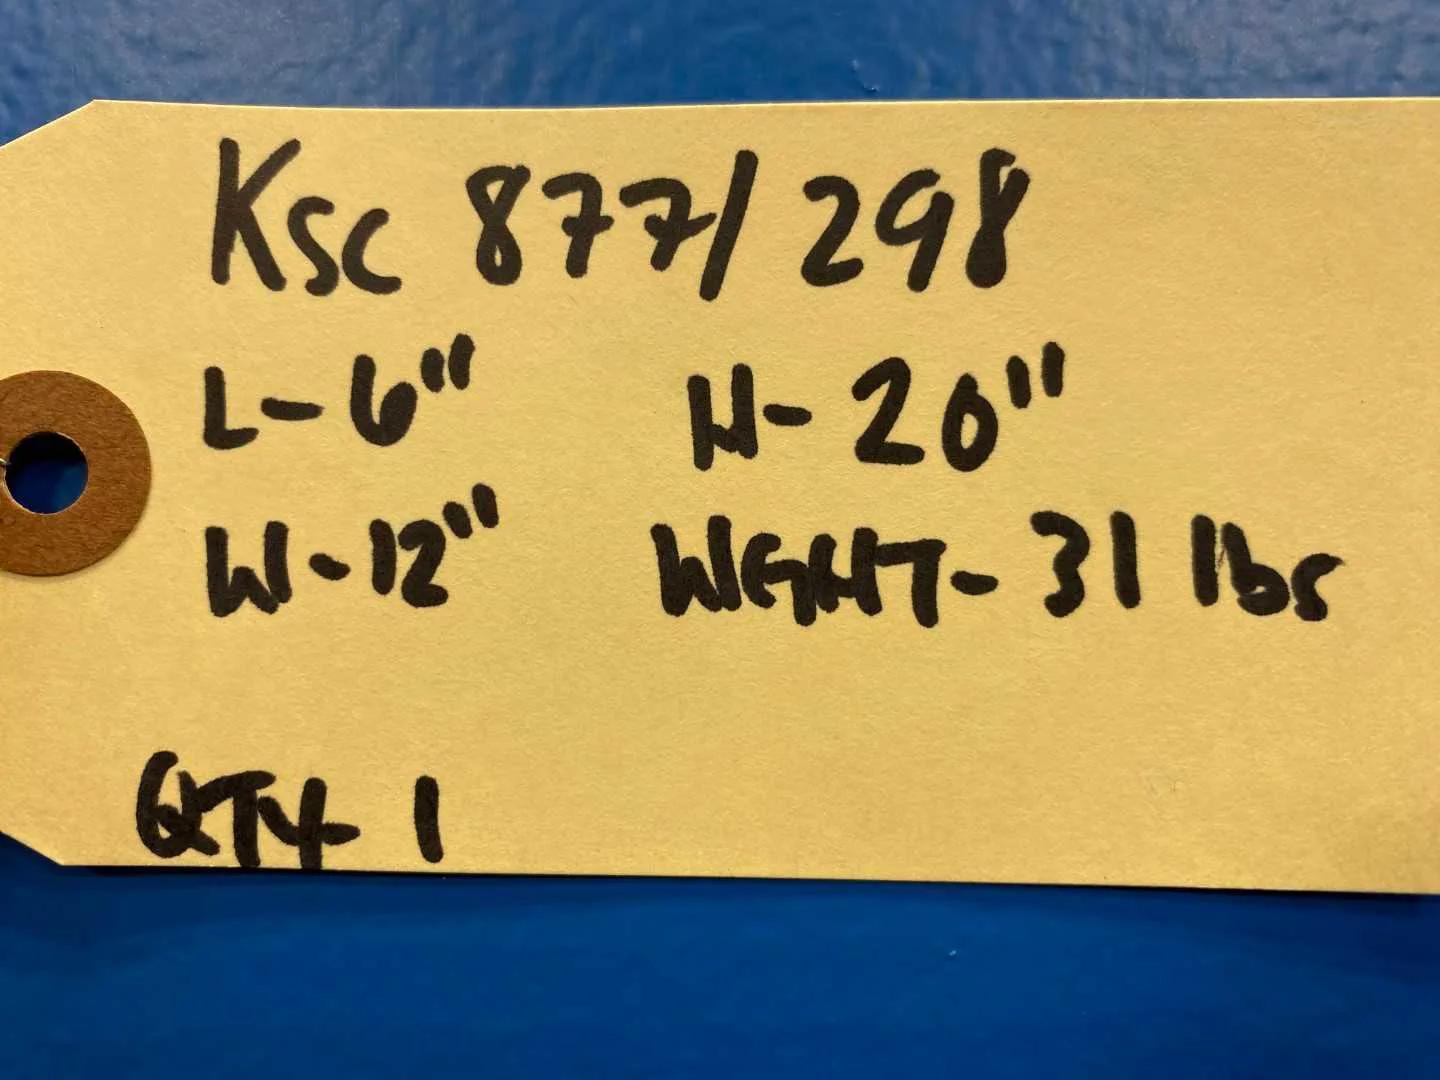 Ksc 877/298
L-6" H-20"
W-12" WGHT-31 lbs
QTY 1